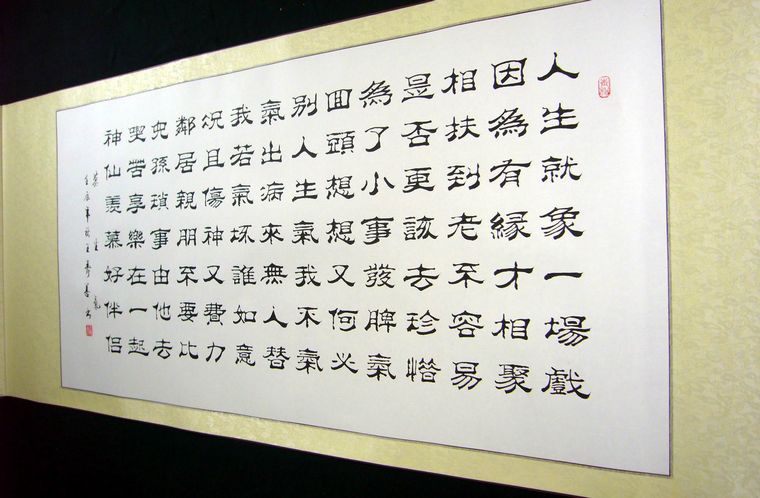 人生就象一場戲
因為有緣才相聚
相扶到老不容易
昰否更該去珍惜
為了小事發脾氣
回頭想想又何必
别人生氣我不氣
氣出病來無人替
我若氣坏誰如意
况且傷神又費力
鄰居親朋不要比
兒孫瑣事由他去
苦享樂在一起
神仙羨慕好伴侶
莫生氣
壬辰年秋王秀書